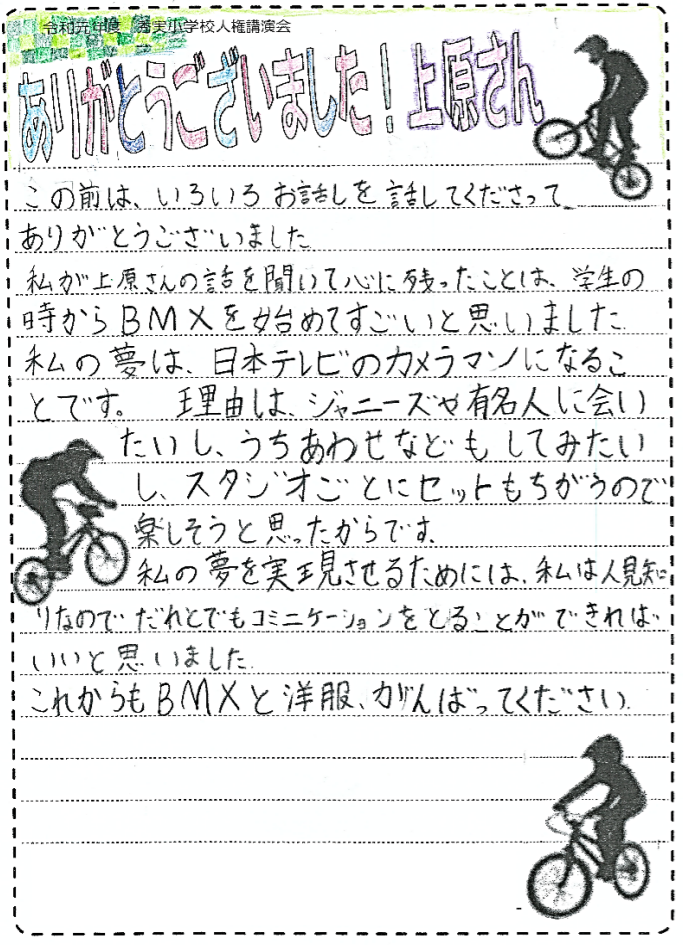 令和元年度 実小学校人権講演会
ありがとうございました！上原さん
この前は、いろいろお話しを話してくださって
ありがとうございました
私が上原さんの話を聞いて心に残ったことは、学生の
時からBMXを始めてすごいと思いました
私の夢は、日本テレビのカメラマンになるこ
とです。 理由は、ジャニーズや有名人に会い
たいし、うちあわせなどもしてみたい
し、スタジオごとにセットもちがうので
楽しそうと思ったからです。
私の夢を実現させるためには、私は人見知
りなのでだれとでもコミニケーションをとることができれば
いいと思いました
これからもBMXと洋服、がんばってください。